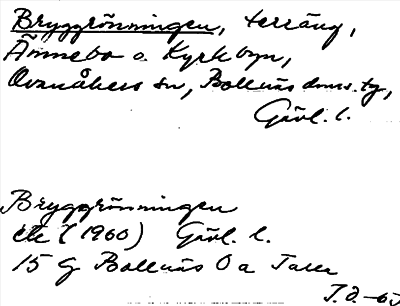 Bryggrönningen, terräng,
Ännebo o. Kyrkbyn,
Ovanåkers sn, Bollnäs doms. tg,
Gävl. l.
Bryggrönningen
etc (1960) Gävl. l.
15 G Bollnäs O a
T.O. -65